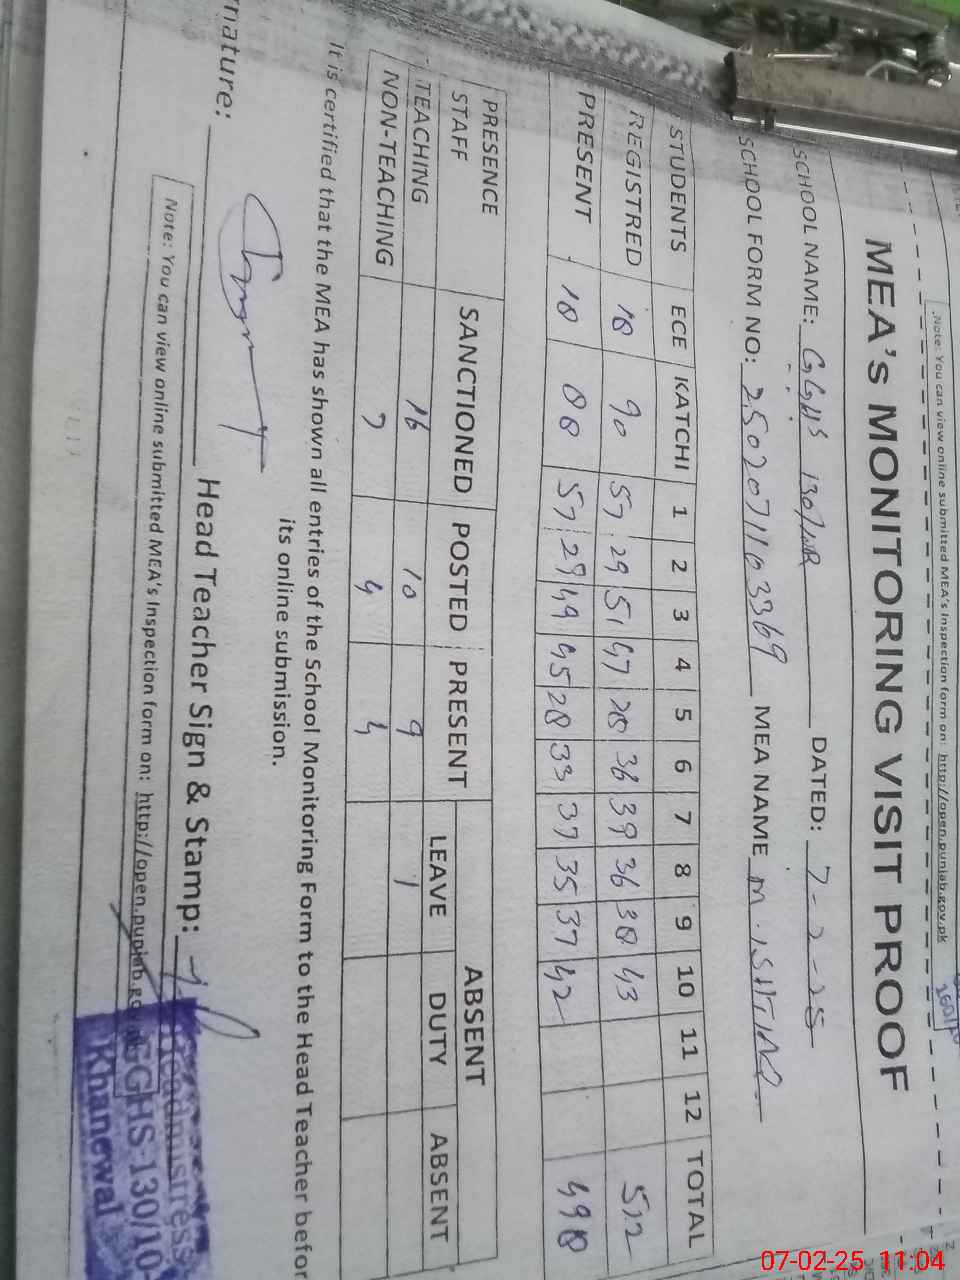 Note: You can view online submitted MEA's Inspection form on: http://open.punjab.gov.pk
MEA'S MONITORING VISIT PROOF
SCHOOL NAME: GGHS 130/10R DATED: 7-2-25
SCHOOL FORM NO: 2502071103369 MEA NAME M.ISHTIAQ
STUDENTS ECE KATCHI 1 2 3 4 5 6 7 8 9 10 11 12 TOTAL
REGISTRED 18 90 57 29 51 47 28 36 39 36 38 43 512
PRESENT 18 88 57 29 49 45 28 33 37 35 37 42 498
PRESENCE STAFF SANCTIONED POSTED PRESENT ABSENT
LEAVE DUTY ABSENT
TEACHING 16 10 9 1
NON-TEACHING 7 4 4
It is certified that the MEA has shown all entries of the School Monitoring Form to the Head Teacher befor
its online submission.
nature: Head Teacher Sign & Stamp:
Note: You can view online submitted MEA's Inspection form on: http://open.punjab.go
Headmistress
GGHS 130/10
Khanewal
07-02-25 11:04